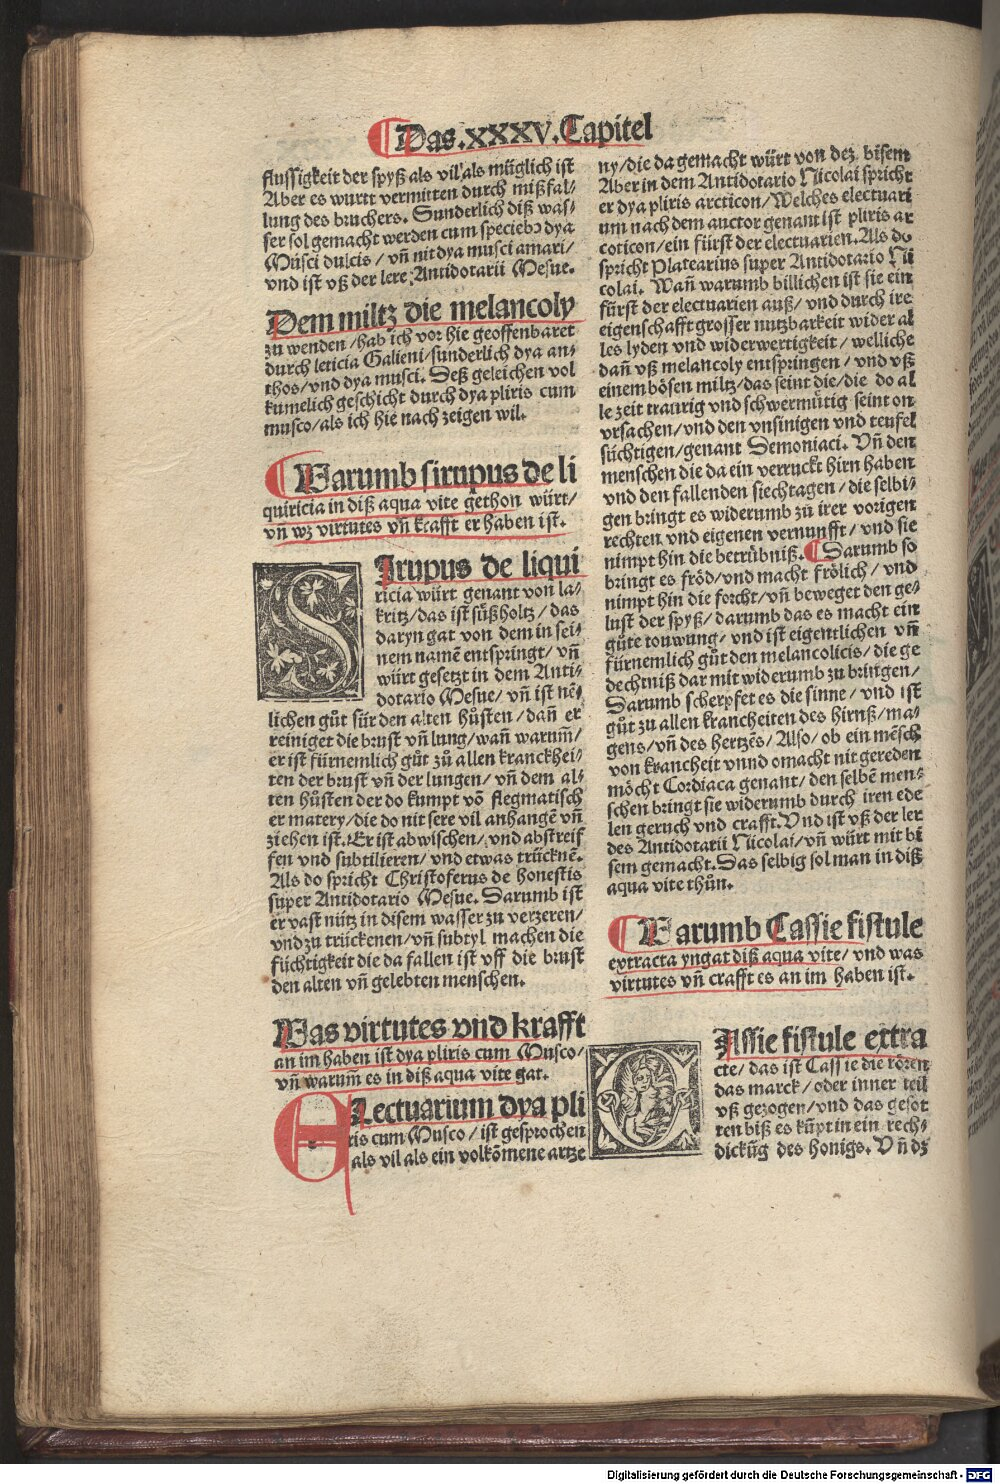 Das.XXXV.Capitel
flussigkeit der spyß als vil als müglich ist
Aber es wurtt vermitten durch mißfal/
lung des bruchers. Sunderlich diß was/
ser sol gemacht werden cum speciebꝫ dya
Musci dulcis/ vn̄ nit dya musci amari/
vnd ist vß der lere Antidotarii Mesue.
Dem miltz die melancoly
zu wenden/hab ich vor hie geoffenbaret
durch leticia Galieni/sunderlich dya an/
thos/vnd dya musci. Deß geleichen vol
kumelich geschicht durch dya pliris cum
musco/als ich hie nach zeigen wil.
Warumb sirupus de li
quiricia in diß aqua vite gethon würt/
vn̄ wz virtutes vn̄ krafft er haben ist.
SIrupus de liqui
ricia würt genant von la/
kritz/das ist süßholtz/das
daryn gat von dem in sei/
nem namē entspringt/vn̄
würt gesetzt in dem Anti/
dotario Mesue/vn̄ ist nē/
lichen gůt für den alten hůsten/dan̄ er
reiniget die brust vn̄ lung/wan̄ warum̄/
er ist fürnemlich gůt zů allen kranckhei/
ten der brust vn̄ der lungen/vn̄ dem al/
ten hůsten der do kumpt vō flegmatisch
er matery/die do nit sere vil anhangē vn̄
ziehen ist. Er ist abwischen/vnd abstreif
fen vnd subtilieren/vnd etwas trücknē.
Als do spricht Christoferus de honestis
super Antidotario Mesue. Darumb ist
er vast nütz in disem wasser zu verzeren/
vnd zu trückenen/vn̄ subtyl machen die
füchtigkeit die da fallen ist vff die brust
den alten vn̄ gelebten menschen.
Was virtutes vnd krafft
an im haben ist dya pliris cum Musco/
vn̄ warum̄ es in diß aqua vite gat.
ELectuarium dya pli
ris cum Musco/ist gesprochen
als vil als ein volkōmene artze
ny/die da gemacht würt von dez bisem
Aber in dem Antidotario Nicolai spricht
er dya pliris arcticon/Welches electuari
um nach dem auctor genant ist pliris ar
coticon/ein fürst der electuarien. Als do
spricht Platearius super Antidotario Ni
colai. Wan̄ warumb billichen ist sie ein
fürst der electuarien auß/vnd durch ire
eigenschafft grosser nutzbarkeit wider al
les lyden vnd widerwertigkeit/welliche
dan̄ vß melancoly entspringen/vnd vß
einem bösen miltz/das seint die/die do al
le zeit traurig vnd schwermůtig seint on
vrsachen/vnd den vnsinigen vnd teufel
süchtigen/genant Demoniaci. Vn̄ den
menschen die da ein verruckt hirn haben
vnd den fallenden siechtagen/die selbi/
gen bringt es widerumb zu irer vorigen
rechten vnd eigenen vernunfft/vnd sie
nimpt hin die betrübniß. Darumb so
bringt es fröd/vnd macht frölich/vnd
nimpt hin die forcht/vn̄ beweget den ge/
lust der spyß/darumb das es macht ein
gůte touwung/vnd ist eigentlichen vn̄
fürnemlich gůt den melancolicis/die ge
dechtniß dar mit widerumb zu bringen/
Darumb scherpfet es die sinne/vnd ist
gůt zu allen kranckheiten des hirnß/ma/
gens/vn̄ des hertzēs/Also/ob ein mēsch
von kranckheit vnnd omacht nit gereden
möcht Cordiaca genant/den selbē men/
schen bringt sie widerumb durch iren ede
len geruch vnd crafft. Vnd ist vß der ler
des Antidotarii Nicolai/vn̄ würt mit bi
sem gemacht. Das selbig sol man in diß
aqua vite thůn.
Warumb Cassie fistule
extracta yngat diß aqua vite/vnd was
virtutes vn̄ crafft es an im haben ist.
CAssie fistule extra
cte/das ist Cassie die roren
das marck/oder inner teil
vß gezogen/vnd das gesot
ten biß es kūpt in ein rech/
dickūg des honigs. Vn̄ dz
Digitalisierung gefördert durch die Deutsche Forschungsgemeinschaft - DFG